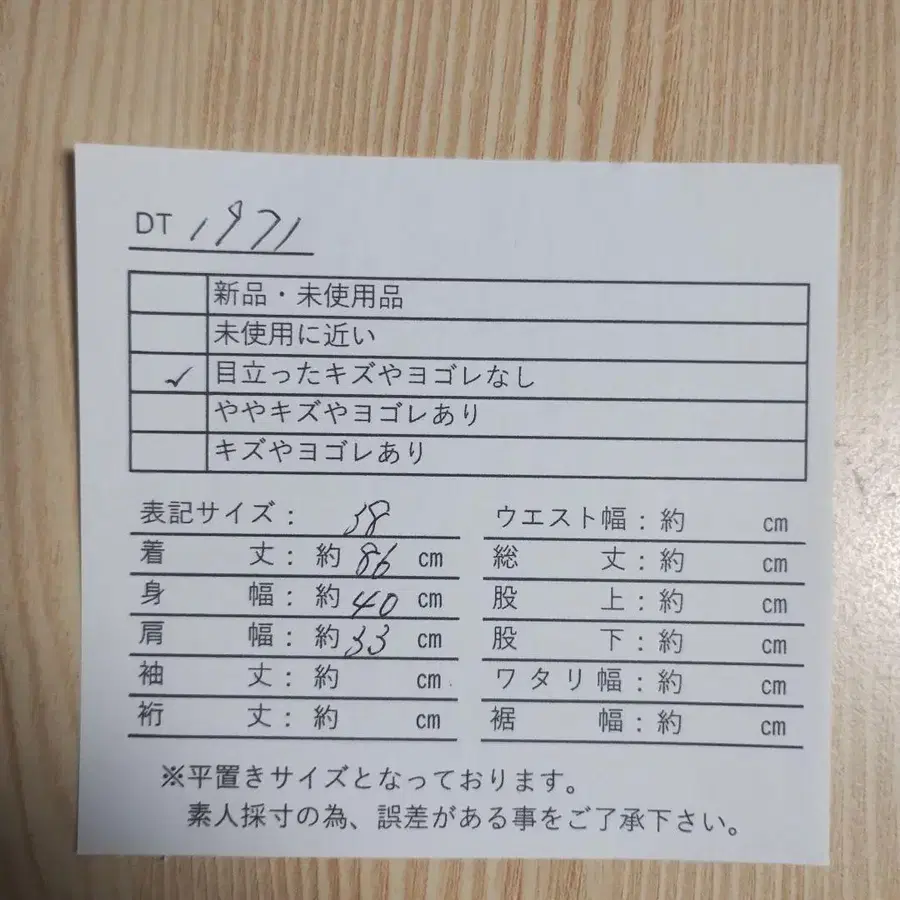 DT 1971
新品・未使用品
未使用に近い
✓ 目立ったキズやヨゴレなし
ややキズやヨゴレあり
キズやヨゴレあり
表記サイズ： 38
着丈：約 86 cm
身幅：約 40 cm
肩幅：約 33 cm
袖丈：約 cm
裄丈：約 cm
ウエスト幅：約 cm
総丈：約 cm
股上：約 cm
股下：約 cm
ワタリ幅：約 cm
裾幅：約 cm
※平置きサイズとなっております。
素人採寸の為、誤差がある事をご了承下さい。